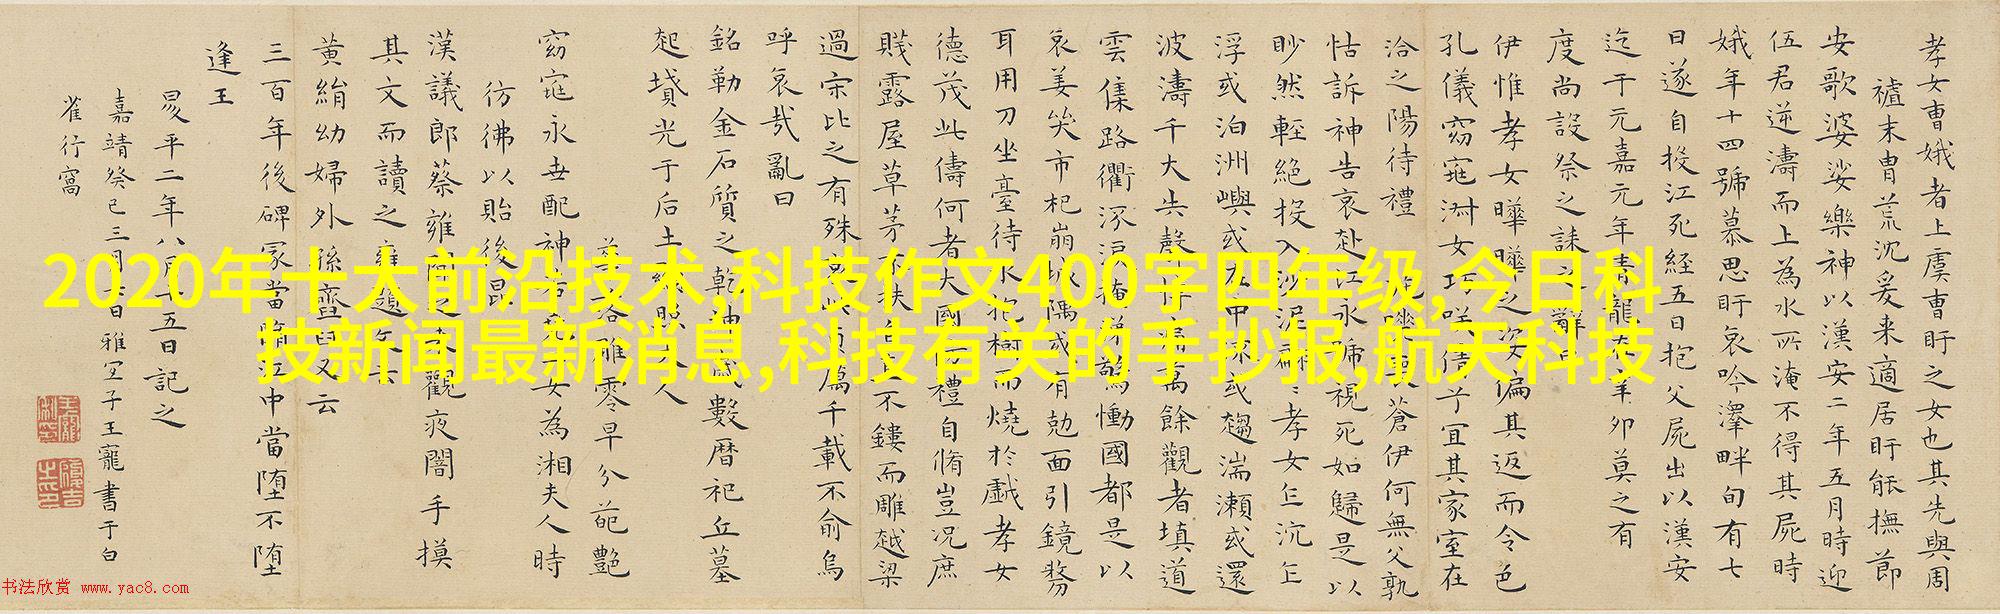 孝女曹娥者上虞曹盱之女也其先與周
末胄荒沈爰来適居盱能撫節
安歌婆娑樂神以漢安二年五月時迎
伍君逆濤而上為水所淹不得其屍時
娥年十四號慕思盱哀吟澤畔旬有七
日遂自投江死経五日抱父屍出以漢安
迄于元嘉元年青龍在辛卯莫之有
度尚設祭之誄之辭曰
伊惟孝女曄曄之姿偏其返而令色
孔儀窈窕淑女巧咲倩子宜其家室在
洽之陽待禮 蒼伊何無父孰
怙訴神告哀赴江永號視死如歸是以
眇然輕絶投入沙泥翩〻孝女乍沉乍
浮或泊洲嶼或在中流或趨湍瀬或還
波濤千夫失聲悼痛萬餘觀者填道
雲集路衢流淚掩涕驚慟國都是以
哀姜哭市杞崩城隅或有剋面引鏡剺
耳用刀坐臺待水抱樹而燒於戲孝女
德茂此儔何者大國防禮自脩豈況庶
賤露屋草茅不扶自直不鏤而雕越梁
過宋比之有殊哀此貞厲千載不渝烏
呼哀哉亂曰
銘勒金石質之乾坤歲數曆祀丘墓
起墳光于后土 照夫人
落雕零早分葩艷
窈窕永世配神若堯二女為湘夫人時
彷彿以貽後昆
漢議郎蔡雍聞之来觀夜闇手摸
其文而讀之雍題文云
黃絹幼婦外孫齏臼又云
三百年後碑冢當墮江中當墮不墮
逢王
昇平二年八月十五日記之
嘉靖癸巳三月六日雅宜子王寵書于白
雀行窩
2020年十大前沿技术,科技作文400字四年级,今日科
技新闻最新消息,科技有关的手抄报,航天科技
书法欣赏 www.yac8.com